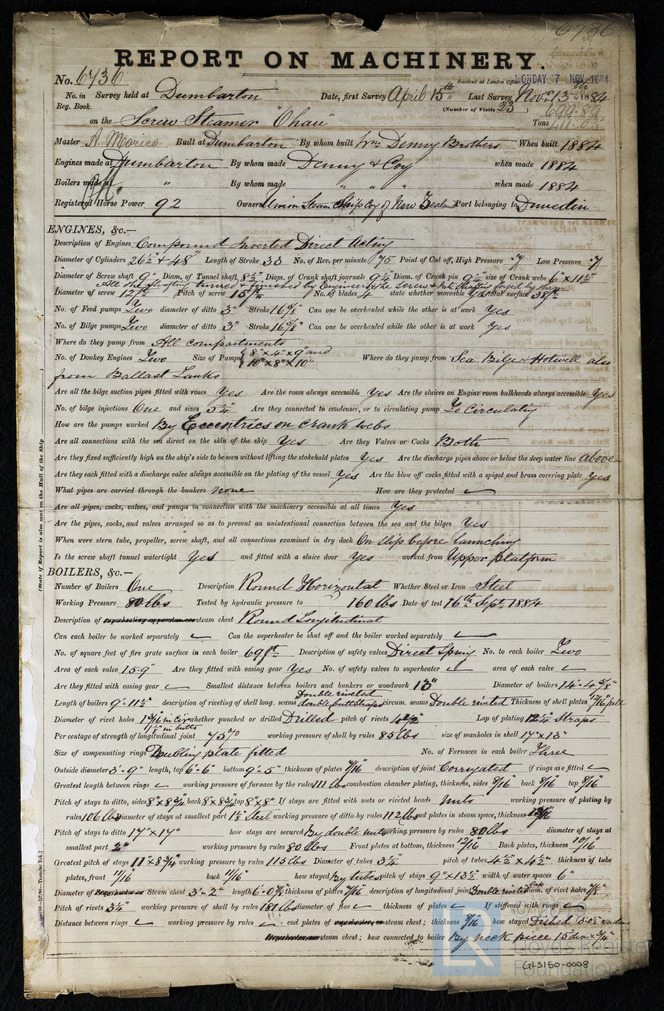 6736
REPORT ON MACHINERY.
No. 6736 Received at London Office MONDAY 7 NOV 1884
No. in Survey held at Dumbarton Date, first Survey April 15th Last Survey Novr 13th 1884
Reg. Book. (Number of Visits 23)
on the Screw Steamer "Ohau" Tons
Master Built at Dumbarton By whom built Wm Denny & Brothers When built 1884
Engines made at Dumbarton By whom made Denny & Coy when made 1884
Boilers made at " By whom made " " " when made 1884
Registered Horse Power 92 Owners Union Steam Ship Coy of New Zealand Port belonging to Dunedin
ENGINES, &c.—
Description of Engines Compound Inverted Direct Acting
Diameter of Cylinders 26½ & 48" Length of Stroke 33 No. of Rev. per minute 75 Point of Cut off, High Pressure .7 Low Pressure .7
Diameter of Screw shaft 9" Diam. of Tunnel shaft 8½" Diam. of Crank shaft journals 9¼ Diam. of Crank pin 9½ size of Crank webs 6" × 11½
All the shafting turned & finished by Engineers
Diameter of screw Pitch of screw No. of blades 4 state whether moveable Yes total surface
No. of Feed pumps Two diameter of ditto 3" Stroke 16½" Can one be overhauled while the other is at work Yes
No. of Bilge pumps Two diameter of ditto 3" Stroke 16½" Can one be overhauled while the other is at work Yes
Where do they pump from All compartments
No. of Donkey Engines Two Size of Pumps 8" × 4" × 9" and 10" × 8" × 10" Where do they pump from Sea Bilge & Hotwell also
from Ballast Tanks
Are all the bilge suction pipes fitted with roses Yes Are the roses always accessible Yes Are the sluices on Engine room bulkheads always accessible Yes
No. of bilge injections One and sizes Are they connected to condenser, or to circulating pump To Circulating
How are the pumps worked By Eccentrics on crank webs
Are all connections with the sea direct on the skin of the ship Yes Are they Valves or Cocks Both
Are they fixed sufficiently high on the ship's side to be seen without lifting the stokehold plates Yes Are the discharge pipes above or below the deep water line above
Are they each fitted with a discharge valve always accessible on the plating of the vessel Yes Are the blow off cocks fitted with a spigot and brass covering plate Yes
What pipes are carried through the bunkers none How are they protected ✓
Are all pipes, cocks, valves, and pumps in connection with the machinery accessible at all times Yes
Are the pipes, cocks, and valves arranged so as to prevent an unintentional connection between the sea and the bilges Yes
When were stern tube, propeller, screw shaft, and all connections examined in dry dock On slip before launching
Is the screw shaft tunnel watertight Yes and fitted with a sluice door Yes worked from Upper platform
(State if Report is also sent on the Hull of the Ship.
BOILERS, &c.—
Number of Boilers One Description Round Horizontal Whether Steel or Iron Steel
Working Pressure 80 lbs Tested by hydraulic pressure to 160 lbs Date of test 16th Sept 1884
Description of superheating apparatus or steam chest Round Longitudinal
Can each boiler be worked separately ✓ Can the superheater be shut off and the boiler worked separately ✓
No. of square feet of fire grate surface in each boiler 69 ft Description of safety valves Direct Spring No. to each boiler Two
Area of each valve 15.9 Are they fitted with easing gear Yes No. of safety valves to superheater ✓ area of each valve ✓
Are they fitted with easing gear ✓ Smallest distance between boilers and bunkers or woodwork 13" Diameter of boilers
Length of boilers 9'-11½" description of riveting of shell long. seams Double riveted double butt straps circum. seams Double riveted Thickness of shell plates
Diameter of rivet holes whether punched or drilled Drilled pitch of rivets Lap of plating 12¼ Straps
Per centage of strength of longitudinal joint working pressure of shell by rules 85 lbs size of manholes in shell 17" × 13"
Size of compensating rings Doubling plate fitted No. of Furnaces in each boiler Three
Outside diameter 3'-9" length, top 6'-6" bottom 9'-5" thickness of plates 9/16 description of joint Corrugated if rings are fitted ✓
Greatest length between rings ✓ working pressure of furnace by the rules 111 lbs combustion chamber plating, thickness, sides 9/16 back 9/16 top 9/16
Pitch of stays to ditto, sides back top 8" × 8" If stays are fitted with nuts or riveted heads nuts working pressure of plating by
rules 106 lbs Diameter of stays at smallest part working pressure of ditto by rules 112 lbs end plates in steam space, thickness
Pitch of stays to ditto 17" × 17" how stays are secured By double nuts working pressure by rules 80 lbs diameter of stays at
smallest part 2" working pressure by rules 80 lbs Front plates at bottom, thickness Back plates, thickness
Greatest pitch of stays working pressure by rules 115 lbs Diameter of tubes 3½ pitch of tubes 4½ × 4½" thickness of tube
plates, front 11/16 back 11/16 how stayed by tubes pitch of stays 9" × 13½ width of water spaces 6"
Diameter of Superheater or Steam chest 3'-2" length thickness of plates description of longitudinal joint Double riveted Lap diam. of rivet holes
Pitch of rivets 3¼" working pressure of shell by rules 181 lbs diameter of flue ✓ thickness of plates ✓ If stiffened with rings ✓
Distance between rings ✓ working pressure by rules ✓ end plates of superheater, or steam chest; thickness how stayed Dished
Superheater or steam chest; how connected to boiler By neck piece
LR
Foundation
GLS150-0008